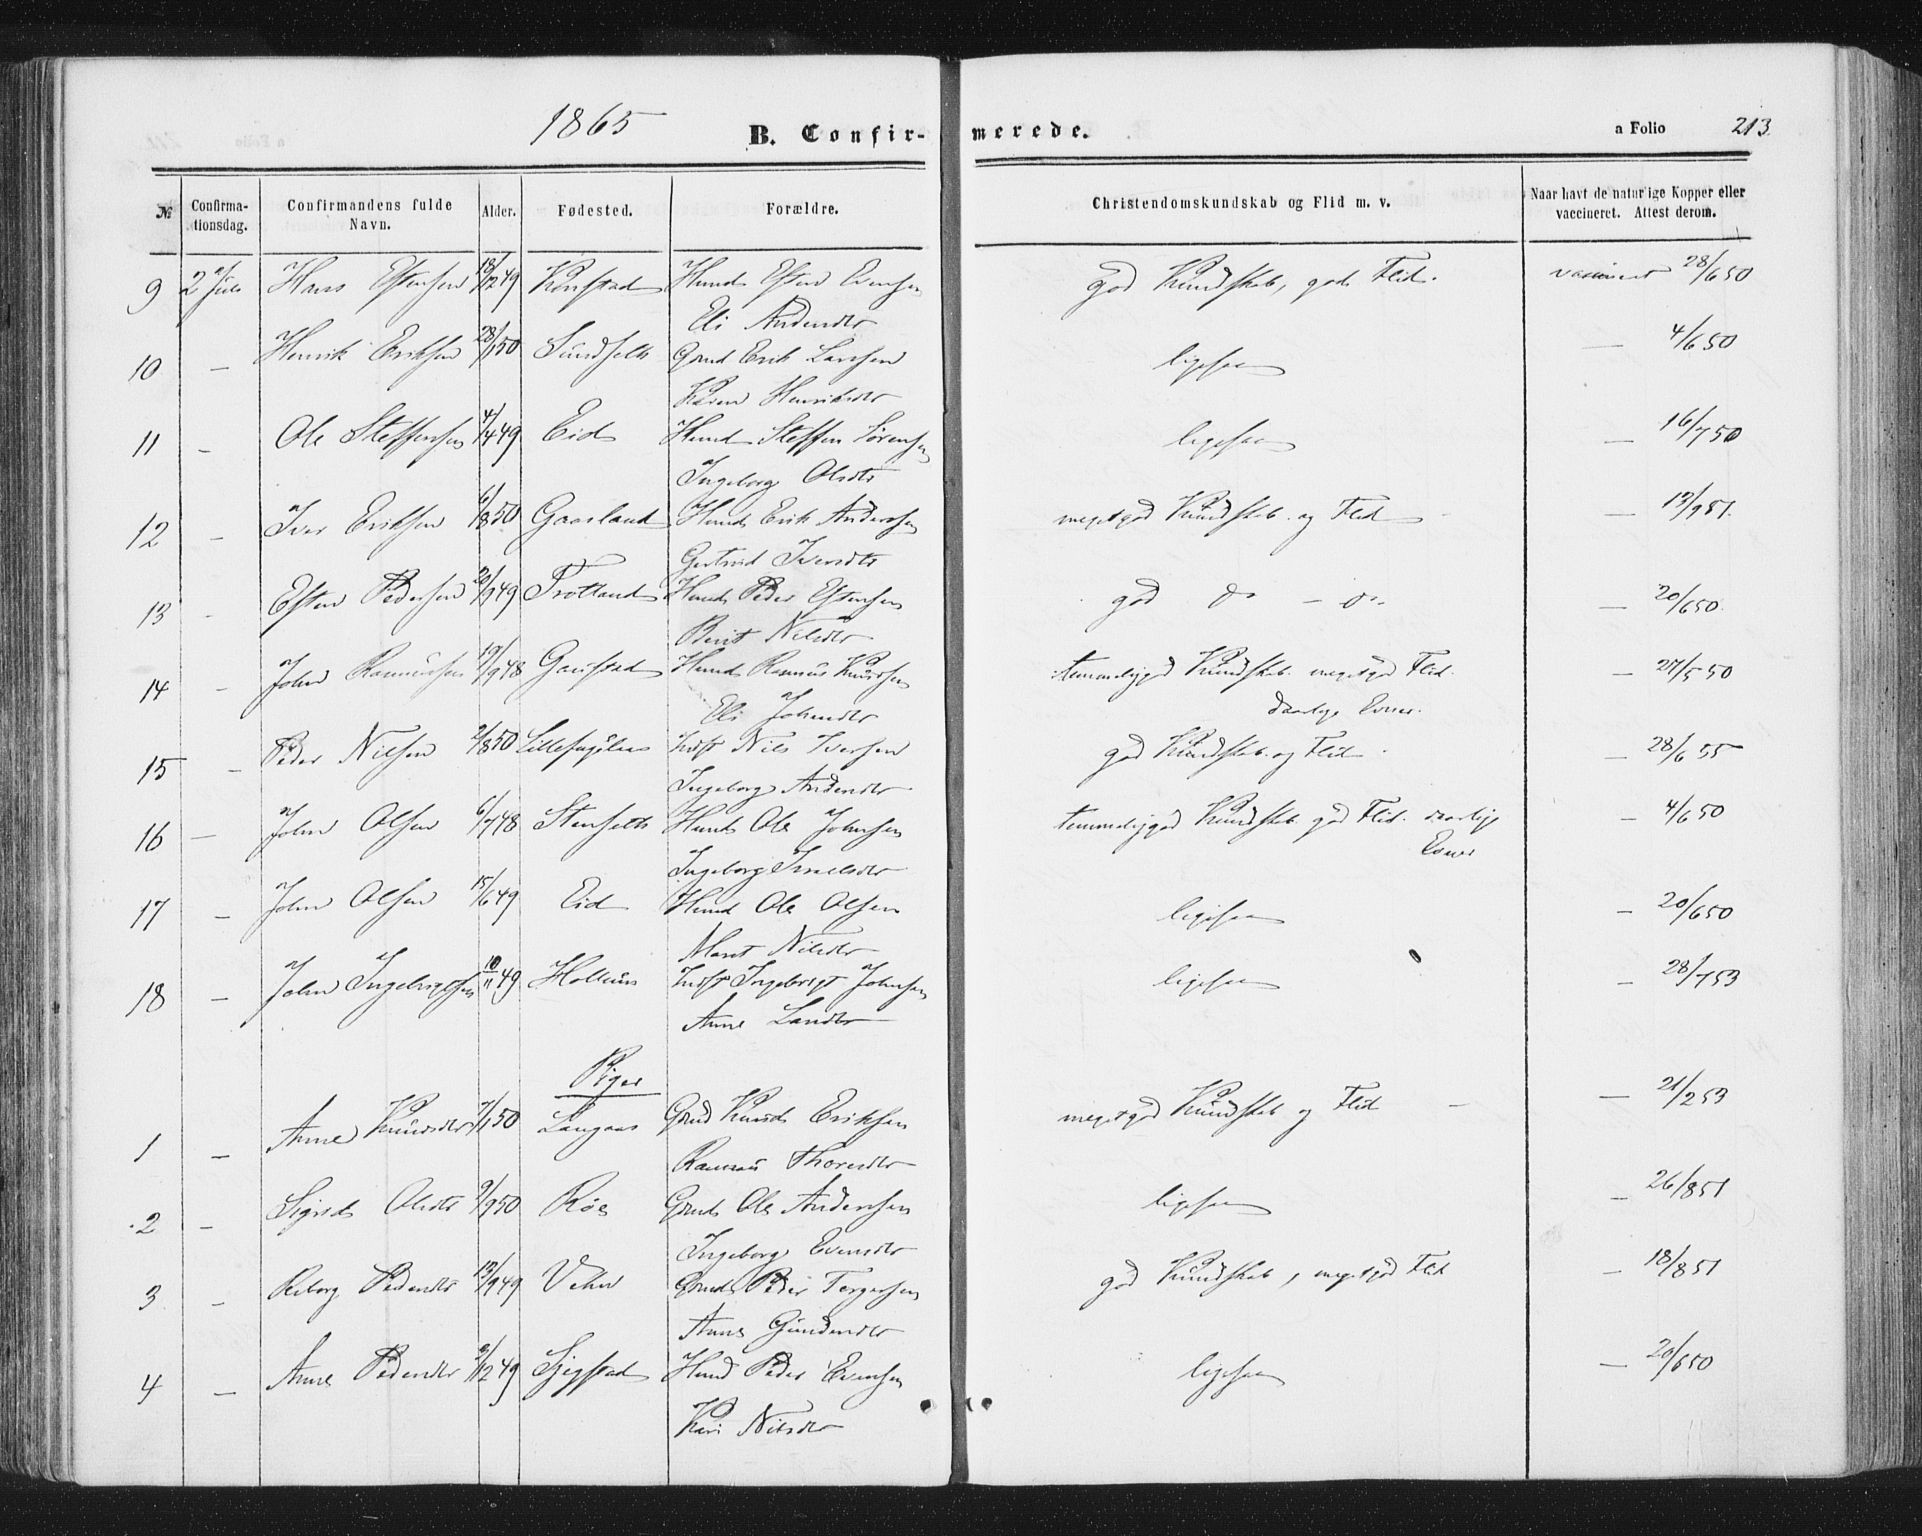 1865 B. Confirmerede. a Folio 213.
№ Confirmationsdag. Confirmandens fulde Navn. Alder. Fødested. Forældre. Christendomskundskab og Flid m. v. Naar havt de naturlige Kopper eller vaccineret. Attest derom.
9 2 Juli Hans Estensen 18/12 49 Konstad Huusm Esten Evensen god Kundskab, god Flid. vaccineret 28/6 50
Eli Andersdtr
10 – Henrik Eriksen 28/1 50 Sundseth Grmd Erik Larssen ligesaa – 4/6 50
Karen Henriksdtr
11 – Ole Steffensen 4/4 49 Eid Huusm Steffen Sørensen ligesaa – 16/7 50
Ingeborg Olsdtr
12 – Iver Eriksen 6/8 50 Gaasland Huusm Erik Andersen meget god Kundskab og Flid – 13/9 51.
Gertrud Iversdtr
13 – Esten Pedersen 49 Trotland Huusm Peder Estensen god do – do – 20/6 50.
Berit Nilsdtr
14 – John Rasmussen 19/9 48 Gaustad Huusm Rasmus Knudsen temmelig god Kundskab. meget god Flid. – 27/5 50
Eli Johnsdtr daarlige Evner.
15 – Peder Nilsen 2/8 50 Indst Nils Iversen god Kundskab og Flid – 28/6 55
Ingeborg Andersdtr
16 – John Olsen 6/7 48 Stenseth Huusm Ole Johnsen temmelig god Kundskab god Flid. daarlige – 4/6 50
Ingeborg Evner
17 – John Olsen 15/6 49 Eid Huusm Ole Olsen ligesaa – 20/6 50
Marit Nilsdtr
18 – John Ingebrigtsen 10/11 49 Indst Ingebrigt Johnsen ligesaa – 28/7 53
Anne Larsdtr
Piger
1 – Anne Knudsdtr 7/1 50 Langaas Grmd Knud Eriksen meget god Kundskab og Flid – – 21/2 53
Thoresdtr
2 – Sigrid Olsdtr 9/9 50 Røe Grmd Ole Andersen ligesaa – 26/8 51
Ingeborg Evensdtr
3 – Reborg Pedersdtr 13/9 49 Grmd Peder Torgersen god Kundskab, meget god Flid – 18/8 51
Anne Gundersdtr
4 – Anne Pedersdtr 2/12 49 Huusm Peder Evensen ligesaa – 20/6 50
Kari Nilsdtr